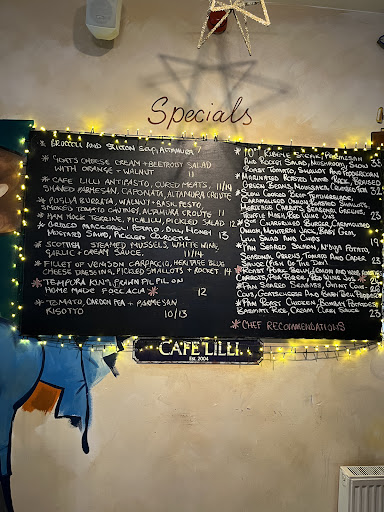 Specials
* BROCCOLI AND STILTON SOUP, ALTAMURA 7
* GOATS CHEESE CREAM + BEETROOT SALAD
WITH ORANGE + WALNUT 11
* CAFE LILLI ANTIPASTO, CURED MEATS, 11/14
SHAVED PARMESAN, CAPONATA, ALTAMURA CROUTE
* PUGLIA BURRATA, WALNUT + BASIL PESTO
SMOKED TOMATO CHUTNEY, ALTAMURA CROUTE 11
* HAM HOCK TERRINE, PICALILLI, PICKLED SALAD 12
* GRILLED MACKEREL, POTATO, DILL, HONEY
MUSTARD SALAD, PICKLED 13
* SCOTTISH STEAMED MUSSELS, WHITE WINE,
GARLIC + CREAMY SAUCE 11/14
* FILLET OF VENISON CARPACCIO, HERITAGE BLUE
CHEESE DRESSING, PICKLED SHALLOTS + ROCKET 14
* TEMPURA KING PRAWN PIL PIL ON
HOME MADE FOCCACIA * 12
* TOMATO, GARDEN PEA + PARMESAN
RISOTTO 10/13
* 10" RIBEYE STEAK, PARMESAN
AND ROCKET SALAD, MUSHROOM,
ROAST TOMATO, SHALLOT AND PEPPERCORN
* MARINATED ROASTED LAMB RACK, BRAISED
GREEN BEANS, MOUSSAKA,
* SLOW COOKED BEEF
CARAMELISED ONION, ROASTED SHALLOTS
HERITAGE CARROTS, SEASONAL GREENS,
TRUFFLE MASH, RED WINE JUS 23
* CHARGRILLED BURGER, CARAMELISED
ONION, MONTEREY JACK, BABY GEM
LILLI SALAD AND CHIPS 19
* PAN SEARED SALMON, N'DUJA POTATO
SEASONAL GREENS, TOMATO AND CAPER
SAUCE (FISH OF THE DAY) 23
* ROAST PORK BELLY,
CARROTS, RED WINE JUS
* PAN SEARED GIANT
* PAN ROAST CHICKEN, BOMBAY POTATOES
BASMATI RICE, CREAM CURRY SAUCE 23
* CHEF RECOMMENDATIONS
CAFE LILLI
EST. 2004